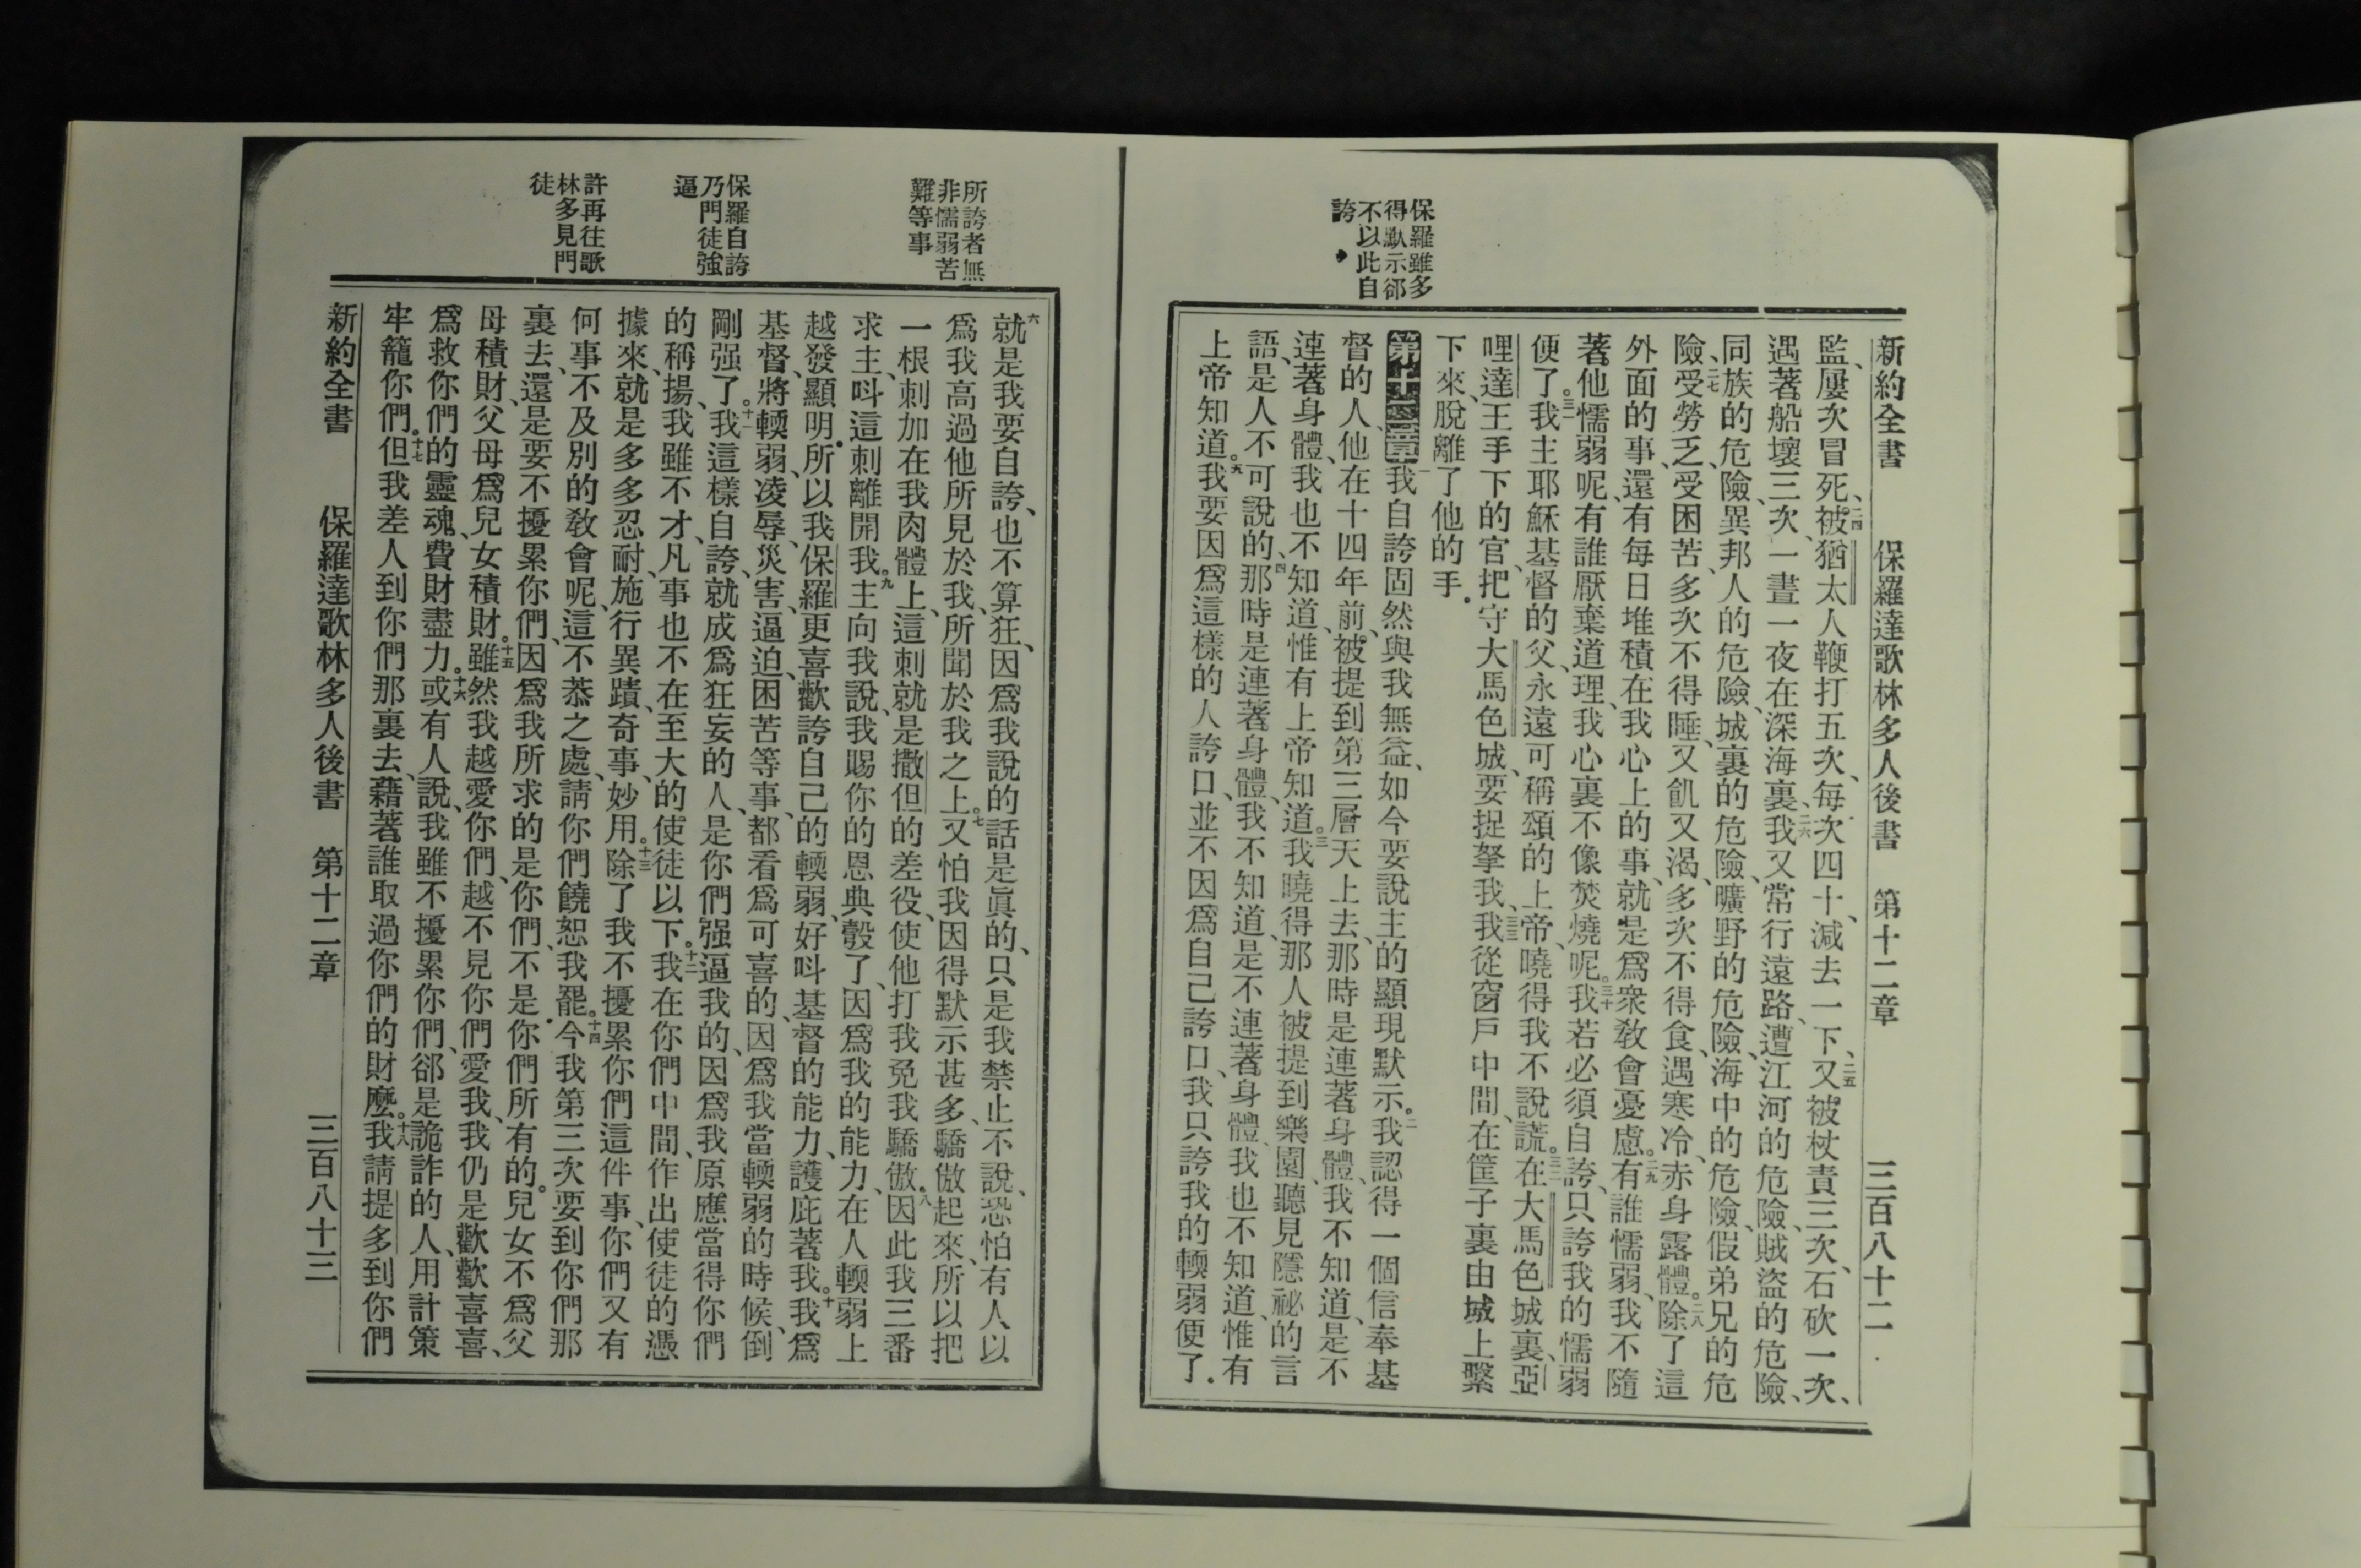 新約全書　保羅達歌林多人後書　第十二章　三百八十二
保羅雖多
得默示郤
不以此自
誇
監、屢次冒死、二四被猶太人鞭打五次、每次四十、減去一下、二五又被杖責三次、石砍一次、
遇著船壞三次、一晝一夜在深海裏、二六我又常行遠路、遭江河的危險、賊盜的危險、
同族的危險、異邦人的危險、城裏的危險、曠野的危險、海中的危險、假弟兄的危
險、二七受勞乏、受困苦、多次不得睡、又飢又渴、多次不得食、遇寒冷、赤身露體。二八除了這
外面的事、還有每日堆積在我心上的事、就是爲衆敎會憂慮。二九有誰懦弱、我不隨
著他懦弱呢、有誰厭棄道理、我心裏不像焚燒呢。三十我若必須自誇、只誇我的懦弱
便了。三一我主耶穌基督的父、永遠可稱頌的上帝、曉得我不說謊。三二在大馬色城裏、亞
哩達王手下的官、把守大馬色城、要捉拏我、三三我從窗戶中間、在筐子裏由城上繫
下來、脫離了他的手．
第十二章一我自誇固然與我無益、如今要說主的顯現默示。二我認得一個信奉基
督的人、他在十四年前、被提到第三層天上去、那時是連著身體、我不知道、是不
連著身體、我也不知道、惟有上帝知道。三我曉得那人被提到樂園、聽見隱祕的言
語、是人不可說的、四那時是連著身體、我不知道、是不連著身體、我也不知道、惟有
上帝知道。五我要因爲這樣的人誇口、並不因爲自己誇口、我只誇我的輭弱便了．
所誇者無
非懦弱苦
難等事
保羅自誇
乃門徒強
逼
許再往歌
林多見門
徒
六就是我要自誇、也不算狂、因爲我說的話是眞的、只是我禁止不說、恐怕有人以
爲我高過他所見於我、所聞於我之上。七又怕我因得默示甚多、驕傲起來、所以把
一根刺加在我肉體上、這刺就是撒但的差役、使他打我免我驕傲。八因此我三番
求主、呌這刺離開我。九主向我說、我賜你的恩典彀了、因爲我的能力、在人輭弱上
越發顯明．所以我保羅更喜歡誇自己的輭弱、好呌基督的能力、護庇著我。十我爲
基督、將輭弱、凌辱、災害、逼迫、困苦等事、都看爲可喜的、因爲我當輭弱的時候、倒
剛强了。十一我這樣自誇、就成爲狂妄的人、是你們强逼我的、因爲我原應當得你們
的稱揚、我雖不才、凡事也不在至大的使徒以下。十二我在你們中間、作出使徒的憑
據來、就是多多忍耐、施行異蹟、奇事、妙用。十三除了我不擾累你們這件事、你們又有
何事不及別的敎會呢、這不恭之處、請你們饒恕我罷。十四今我第三次要到你們那
裏去、還是要不擾累你們、因爲我所求的是你們、不是你們所有的。兒女不爲父
母積財、父母爲兒女積財。十五雖然我越愛你們、越不見你們愛我、我仍是歡歡喜喜、
爲救你們的靈魂、費財盡力。十六或有人說、我雖不擾累你們、郤是詭詐的人、用計策
牢籠你們。十七但我差人到你們那裏去、藉著誰取過你們的財麼。十八我請提多到你們
新約全書　保羅達歌林多人後書　第十二章　三百八十三